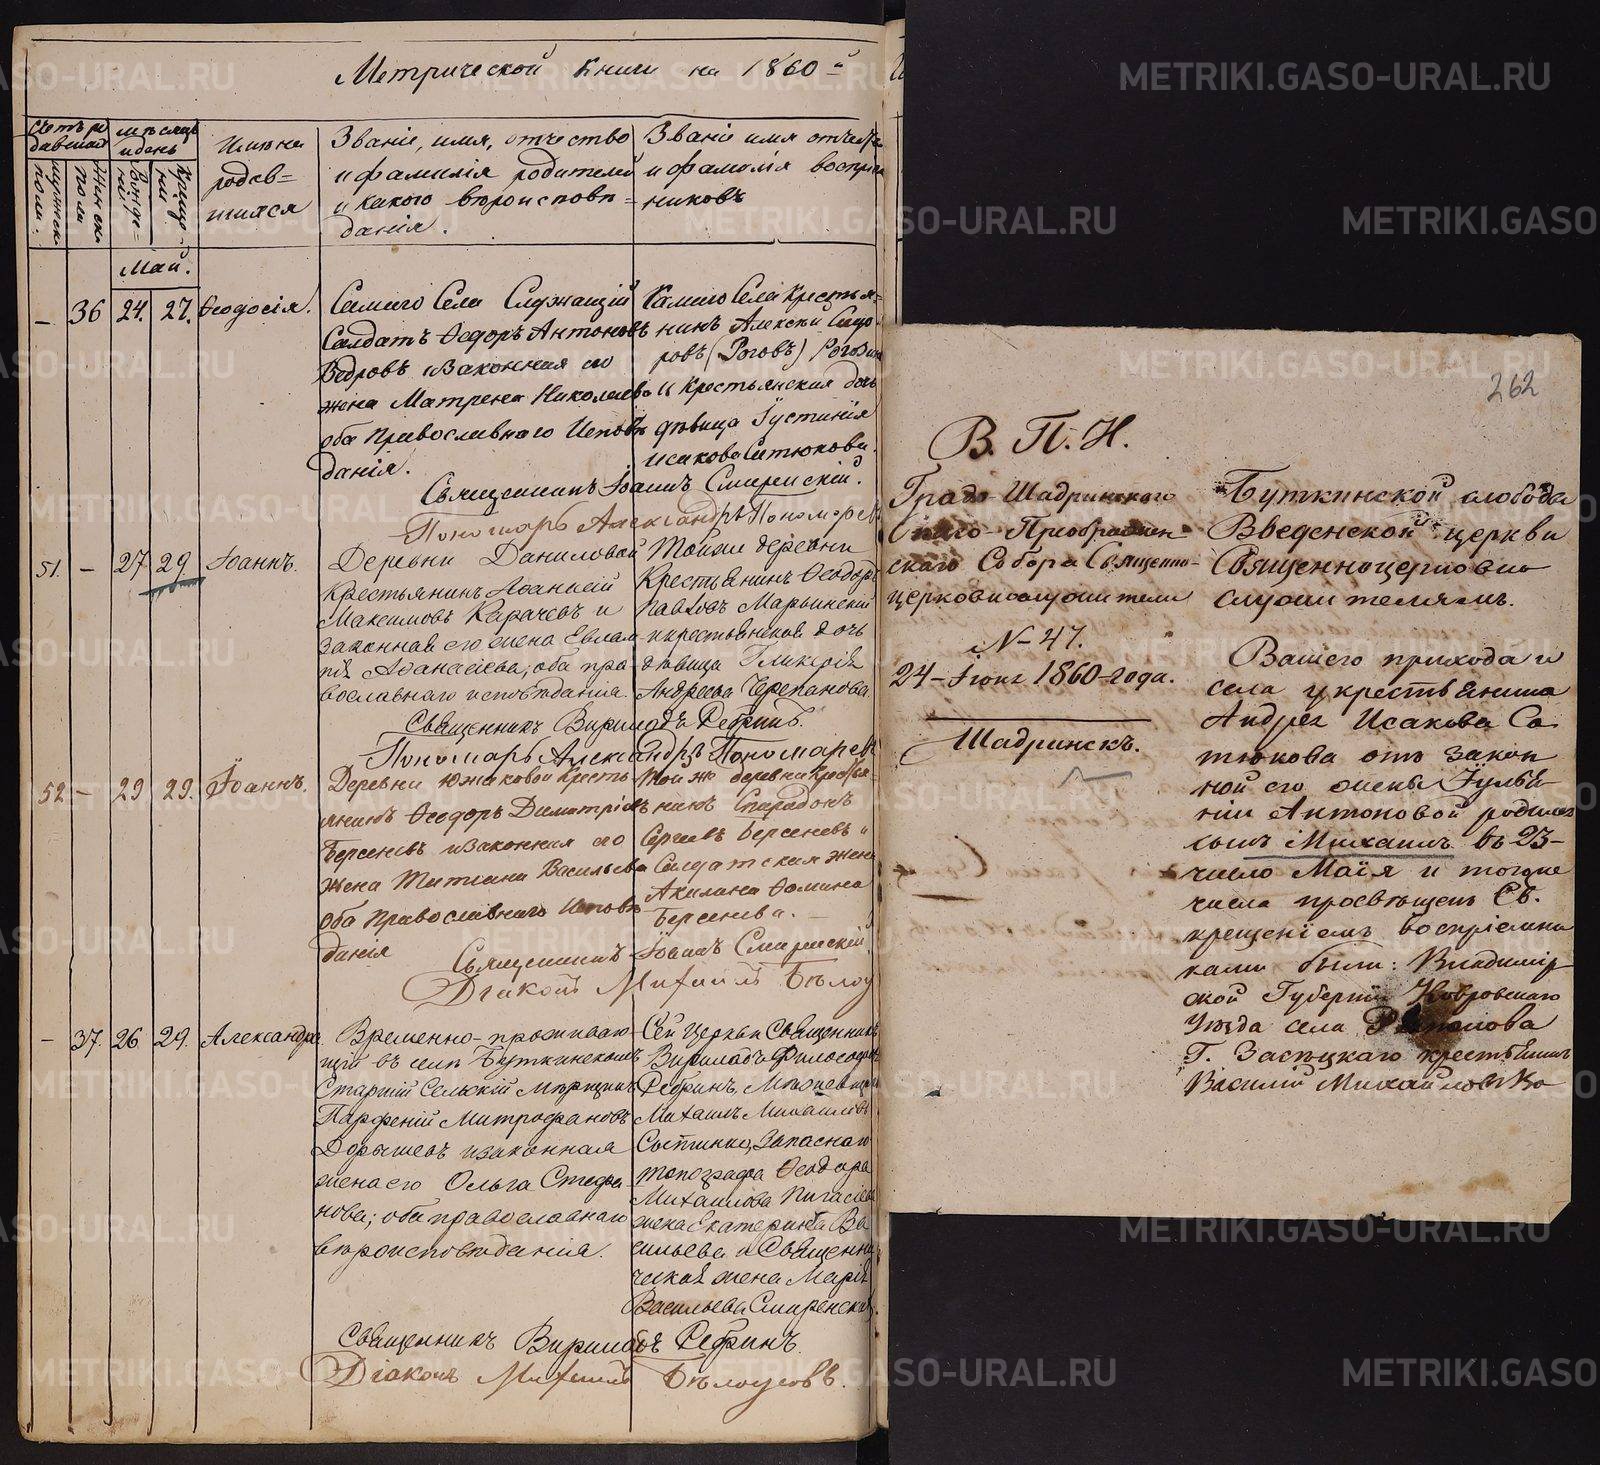 Метрической книги на 1860й
мѣсяцъ
и день
Имяна
родив=
шихся
Званіе, имя, отчество
и фамилія родителей
и какого вѣроисповѣ=
данія.
Званіе имя отчество
и фамилія воспріем
никовъ
Май.
— 36 24. 27. Ѳеодосія.
Самаго Села Служащій
Солдатъ Ѳедоръ Антоновъ
Ведровъ и законная его
жена Матрена Николаева
оба Православнаго Исповѣ
данія.
Самаго Села Крестья=
нинъ Алексѣй Сидо
ровъ (Роговъ)
и Крестьянская дочь
дѣвица Іустинія
Исакова Сатюкова.
Священникъ Іоаннъ Смиренскій.
Пономарь Александръ Пономаревъ
51. — 27 29 Іоаннъ.
Деревни Даниловой
Крестьянинъ Ананій
Максимовъ Карачевъ и
законная его жена Евлам
пія Аѳанасіева, оба пра-
вославнаго исповѣданія.
Той же деревни
Крестьянинъ Ѳеодоръ
Павловъ Марьинскій
и крестьянская дочь
дѣвица Гликерія
Андреева Черепанова.
Священникъ Вириладъ Ребринъ.
Пономарь Александръ Пономаревъ
52 — 29 29. Іоаннъ.
Деревни Южаковой Кресть
янинъ Ѳеодоръ Димитріевъ
Берсеневъ и законная его
жена Татіана Васильева
оба Православнаго Исповѣ
данія
Той же деревни Крестья-
нинъ Спиридонъ
Сергѣевъ Берсеневъ и
Солдатская жена
Акилина Ѳомина
Берсенева.
Священникъ Іоаннъ Смиренскій.
Діаконъ Михаилъ Бѣлоу
— 37. 26 29. Александра.
Временно-проживаю
щій въ селѣ Буткинскомъ
Старшій Сельскій Мѣрщикъ
Парфеній Митрофановъ
Дорышевъ и законная
жена его Ольга Стефа
нова; оба православнаго
вѣроисповѣданія.
Сей церкви Священникъ
Вириладъ Философовъ
Ребринъ,
Михаилъ Михаиловъ
Запаснаго
топографа Ѳеодора
Михаилова Пигасіева
жена Екатерина Ва
сильева и Священни
ческая жена Марія
Васильева Смиренская.
Священникъ Вириладъ Ребринъ.
Діаконъ Михаилъ Бѣлоусовъ.
262
В. П. И.
Градо-Шадринскаго
Спасо-Преображен-
скаго Собора Священно-
церковнослужители
№ 47.
24-Іюня 1860-года.
Шадринскъ.
Буткинской слободы
Введенской церкви
Священноцерковно
служителямъ.
Вашего прихода и
села у крестьянина
Андрея Исакова Са
тюкова отъ закон
ной его жены Іульяе
ніи Антоновой родился
сынъ Михаилъ въ 23-
число Маія и тогоже
числа просвѣщенъ Св.
крещеніемъ воспріемни
ками были: Владимір
ской Губерніи Ковровскаго
Уѣзда села
Г. Засѣцкаго крестьянинъ
Василій Михайловъ Ко